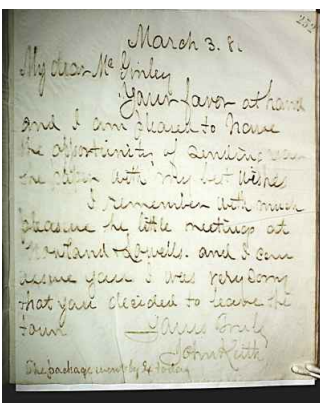 252
March 3. 8.
My dear Mc Ginley
Your favor at hand
and I am pleased to have
the opportunity of sending you
the with my best wishes
I remember with much
pleasure the little meetings at
and I can
assure you I was very sorry
that you decided to leave the
town Yours Truly
John Keith
The package went by Ex today